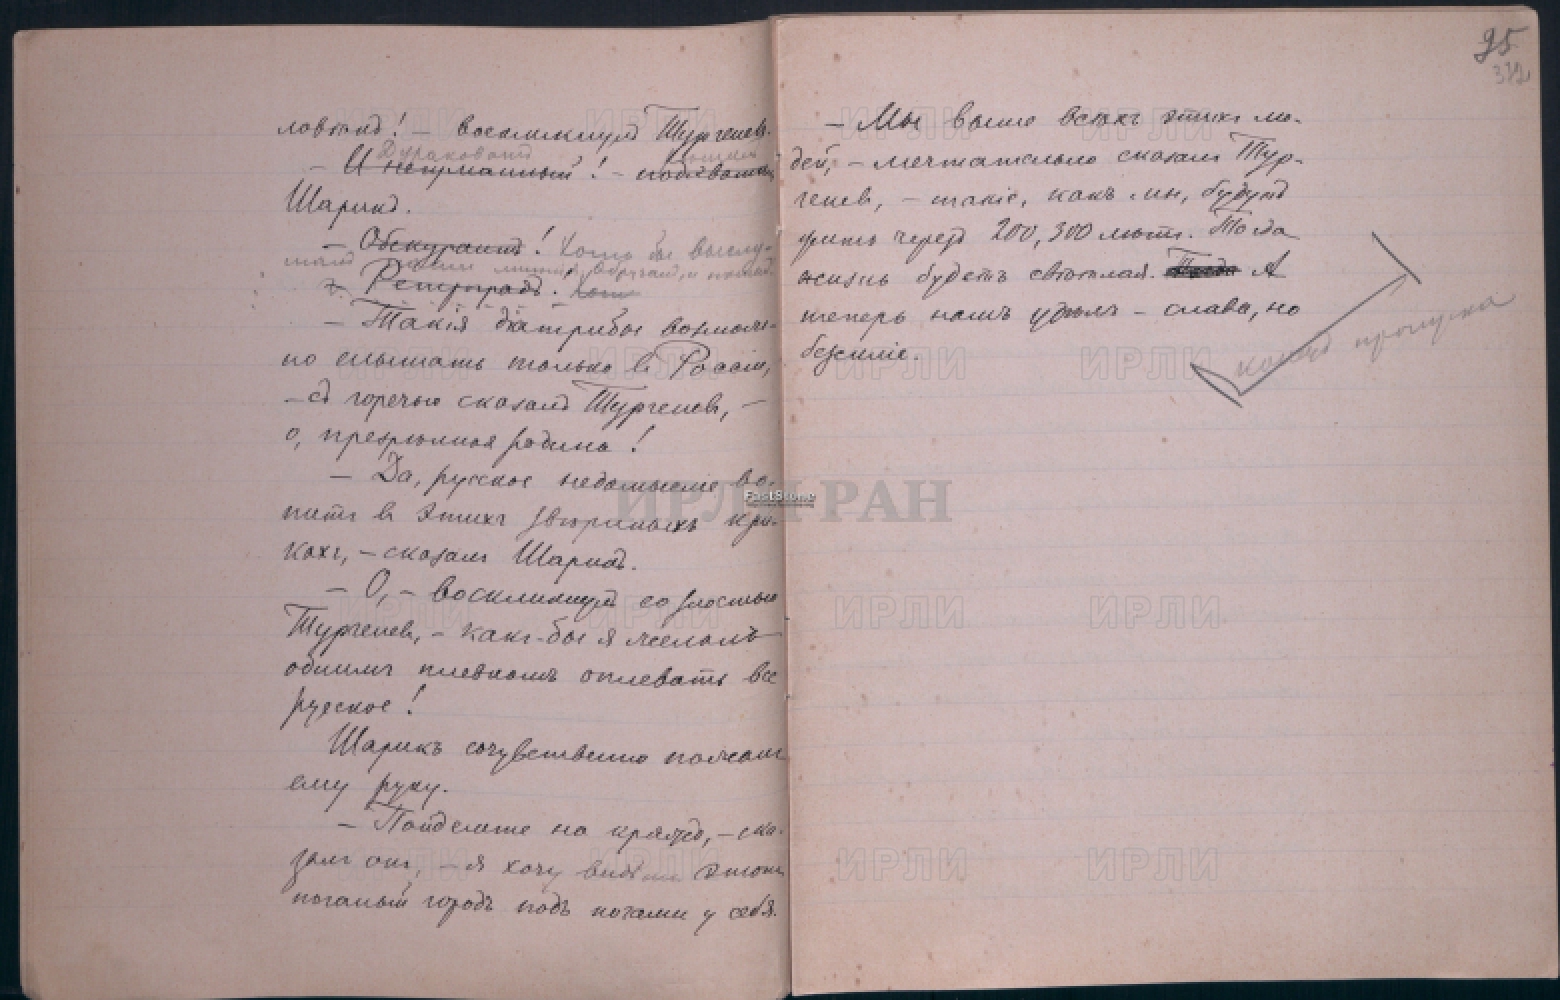 ловѣкъ! – воскликнулъ Тургеневъ.
Дураковатъ
– И нетрманный! – подхватилъ
Шарикъ.
– Обскурантъ! Хоть бы выслу-
шалъ
Ретроградъ!
– Такія діатрибы возмож-
но слышать только въ Россіи,
– съ горечью сказалъ Тургеневъ, –
о, презрѣнная родина!
– Да, русское недомысліе во-
питъ въ этихъ звѣриныхъ кри-
кахъ, – сказалъ Шарикъ.
– О, – воскликнулъ со злостью
Тургеневъ, – какъ-бы я желалъ
однимъ плевкомъ оплевать все
русское!
Шарикъ сочувственно пожалъ
ему руку.
– Пойдемте на крыльцо, – ска-
залъ онъ, – я хочу видѣть этотъ
поганый городъ подъ ногами у себя.
95
372
– Мы выше всѣхъ этихъ лю-
дей, – мечтательно сказалъ Тур-
геневъ, – такіе, какъ мы, будутъ
жить черезъ 200, 300 лѣтъ. Тогда
жизнь будетъ свѣтлая. А
теперь нашъ удѣлъ – слава, но
безсиліе.
конецъ пропуска
ИРЛИ РАН
FastStone